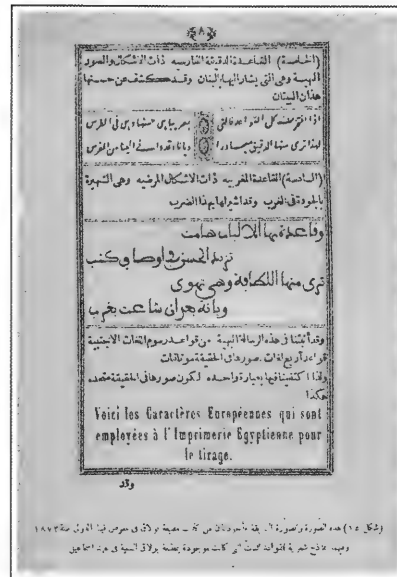 ٨
(الخامسة) القاعدة الدقيقة الفارسيه ذات الاشكال والصور
البهية وهى التى يشار اليها بالبنان وقد كشف عن حسنها
هذان البيتان
اذا افتخرت كل القواعد فالتى
لهذا ترى منها الدقيق
(السادسة) القاعدة المغربيه ذات الاشكال المرضيه وهى الشهيرة
بالجودة فى الغرب وقد اشير لها بهذا الضرب
وقاعدة بها الالباب هامت
تزيد الحسن فى اوصاف كتب
ترى منها اللطافة وهى تهوى
وبانة بحران شاعت بغرب
وقد أثبتنا فى هذه الرسالة البهية من قواعد رسوم اللغات الاجنبية
قواعد أربع لغات صورها فى الحقيقة
ولذا اكتفينا فيها بعبارة واحده لكون صورها فى الحقيقة متحده
هكذا
Voici les Caractères Européennes qui sont
employées à l'Imprimerie Egyptienne pour
le tirage.
وقد
(شكل ١٥) هذه الصورة والصورة السابقة مأخوذتان من كتاب مطبعة بولاق فى معرض فينا الدولى سنة ١٨٧٣
وفيها نماذج شعرية للقواعد التى كانت موجودة بمطبعة بولاق السنية فى عهد اسماعيل